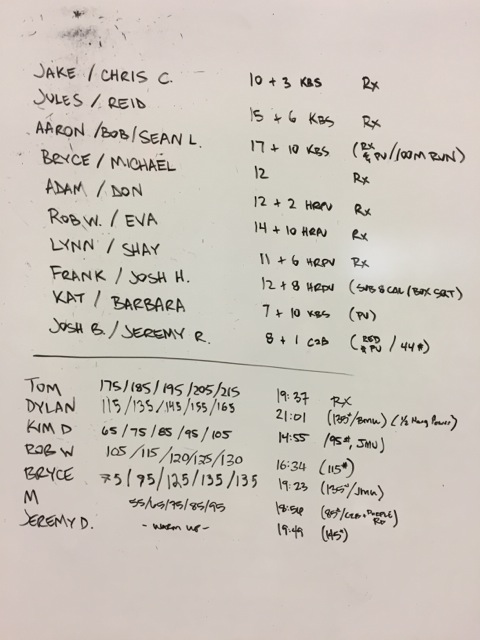 JAKE / CHRIS C. 10 + 3 KBS Rx
JULES / REID 15 + 6 KBS Rx
AARON / BOB / SEAN L. 17 + 10 KBS (Rx & PU / 100M RUN)
BRYCE / MICHAEL 12 Rx
ADAM / DON 12 + 2 HRPU Rx
ROB W. / EVA 14 + 10 HRPU Rx
LYNN / SHAY 11 + 6 HRPU Rx
FRANK / JOSH H. 12 + 8 HRPU (SUB 8 CAL / BOX SQT)
KAT / BARBARA 7 + 10 KBS (PU)
JOSH B. / JEREMY R. 8 + 1 C2B (RED & PU / 44#)
TOM 175/185/195/205/215 19:37 RX
DYLAN 115/135/145/155/165 21:01 (135#/BMU) (1/2 Hang Power)
KIM D 65/75/85/95/105 14:55 (95#, JMU)
ROB W 105/115/120/125/130 16:34 (115#)
BRYCE 75/95/125/135/135 19:23 (135#/JMU)
M 55/65/75/85/95 18:56 (85#/
JEREMY D. - WARM UP - 19:49 (145#)